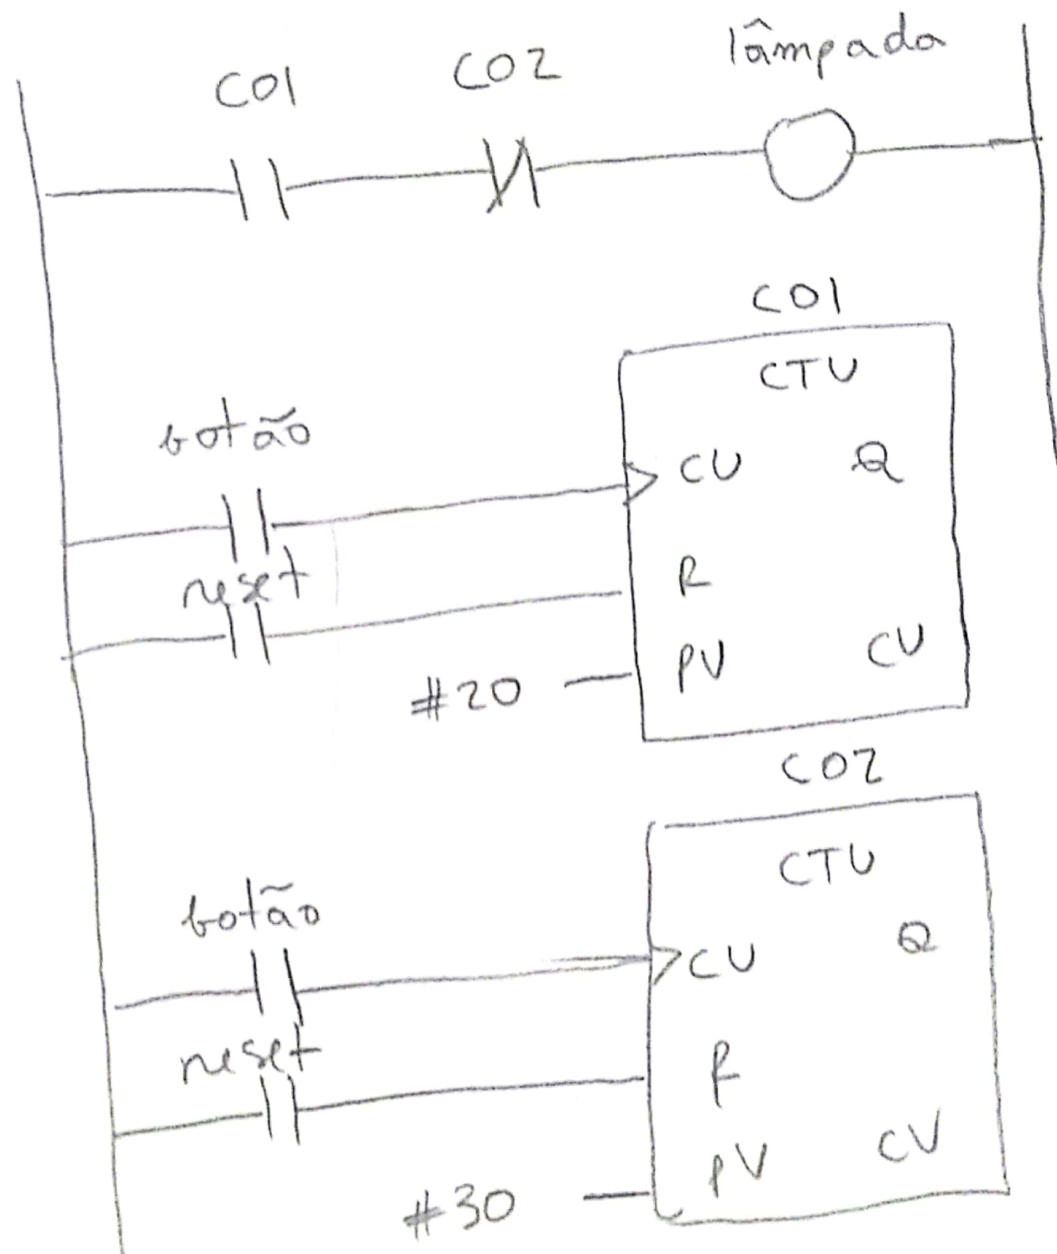 C01 C02 lâmpada
C01
CTU
botão
CU Q
reset
R
PV CV
#20
C02
CTU
botão
CU Q
reset
R
PV CV
#30